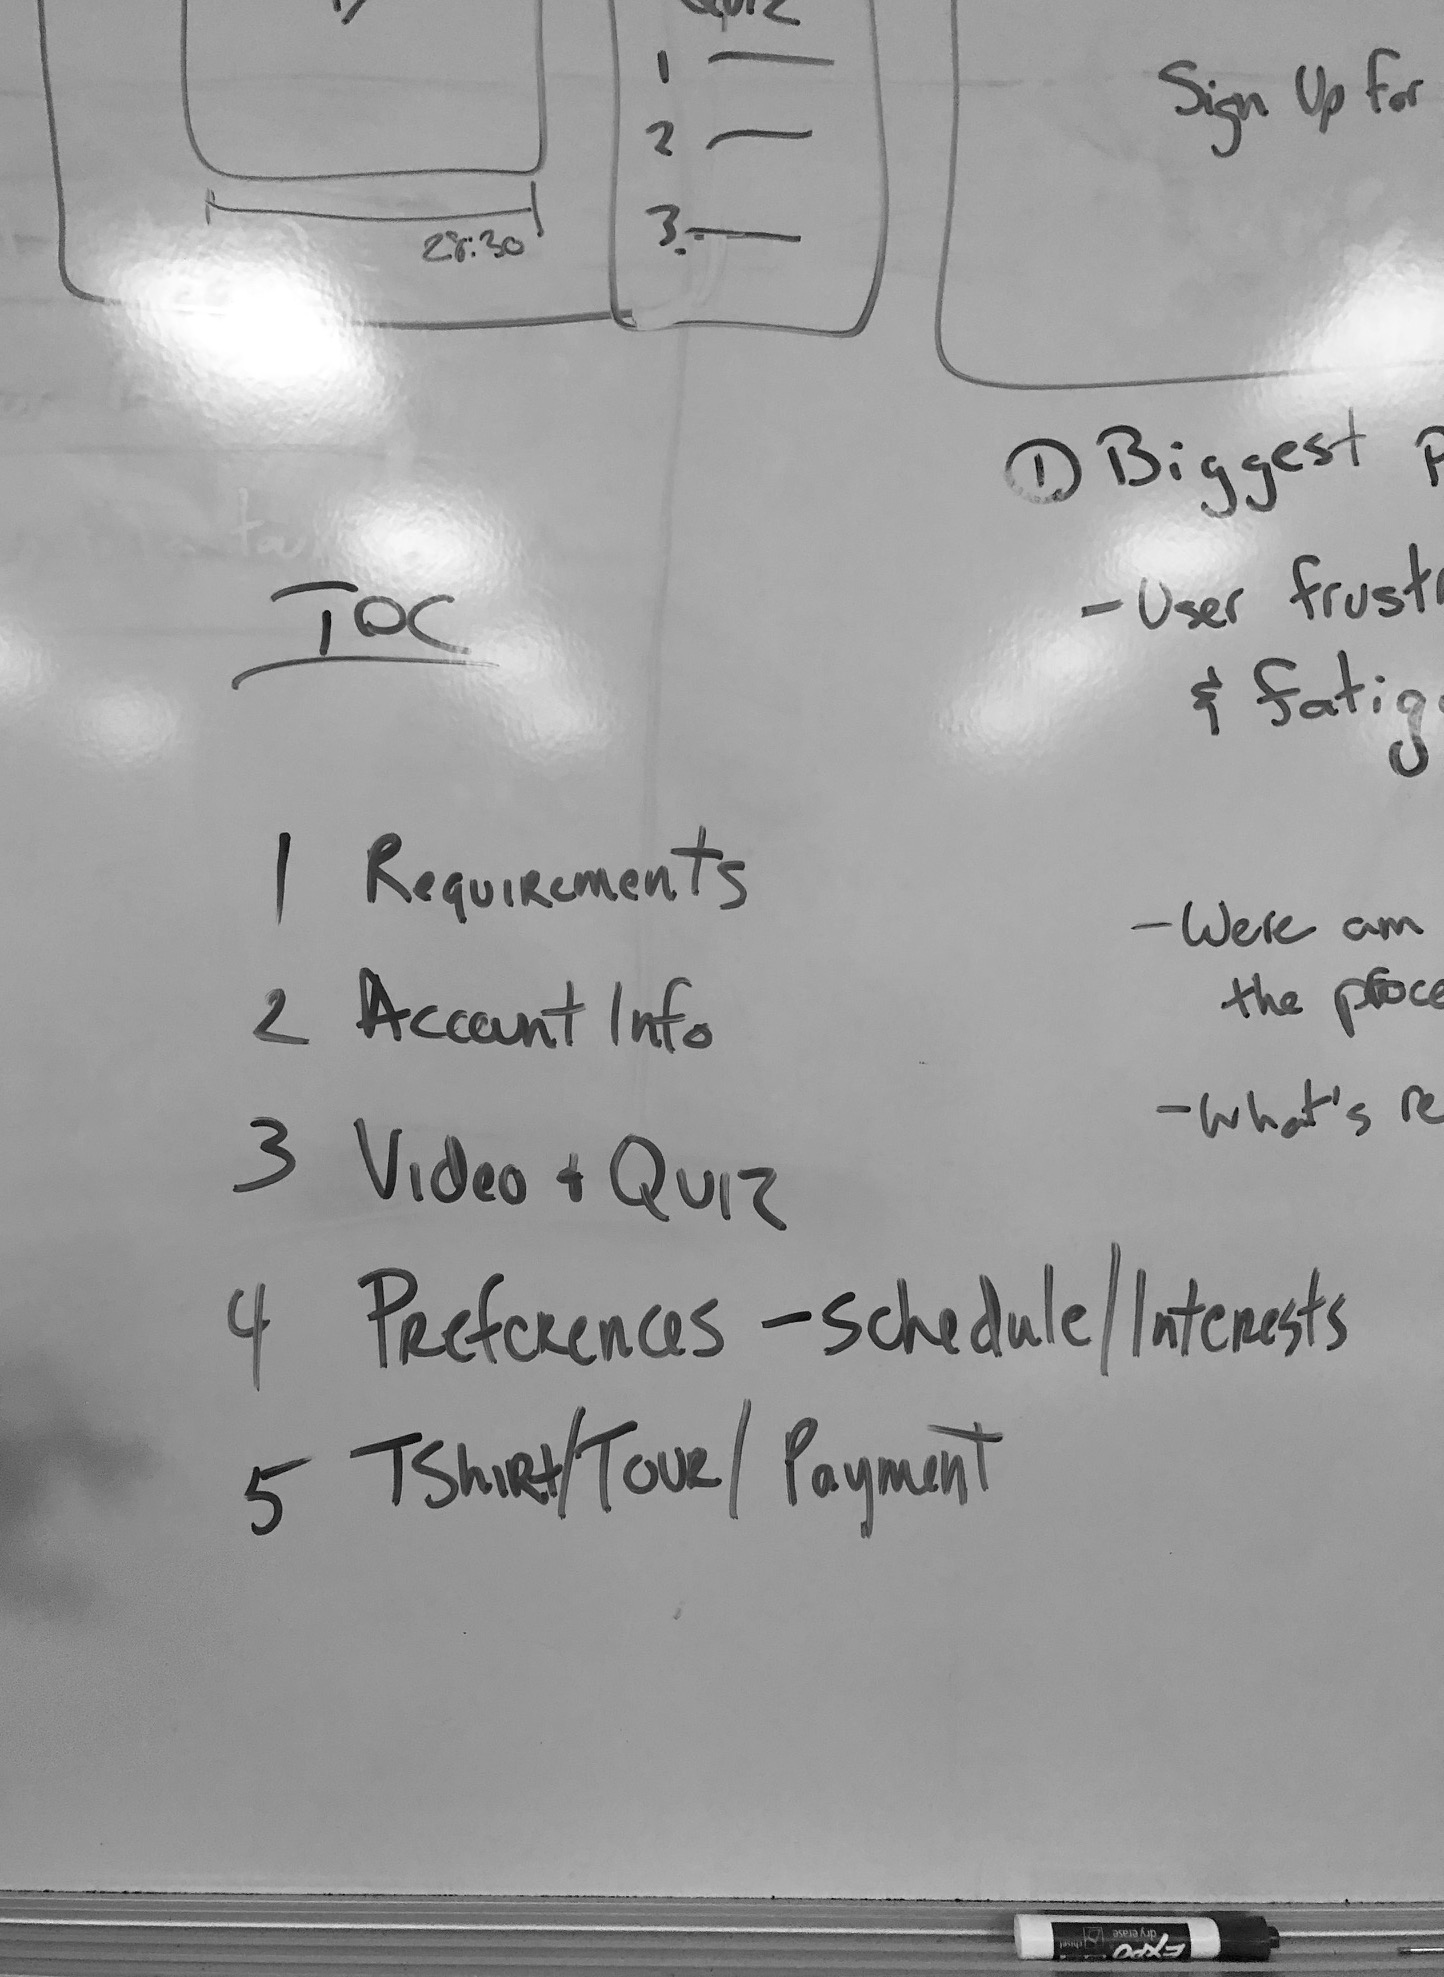 Quiz
1
2
3.
28:30
Sign Up for
① Biggest
- User
& 
TOC
1 Requirements
2 Account Info
3 Video + Quiz
4 Preferences - Schedule/Interests
5 TShirt/Tour/Payment
- Were am
the
- What's
EXPO
dry erase
chisel